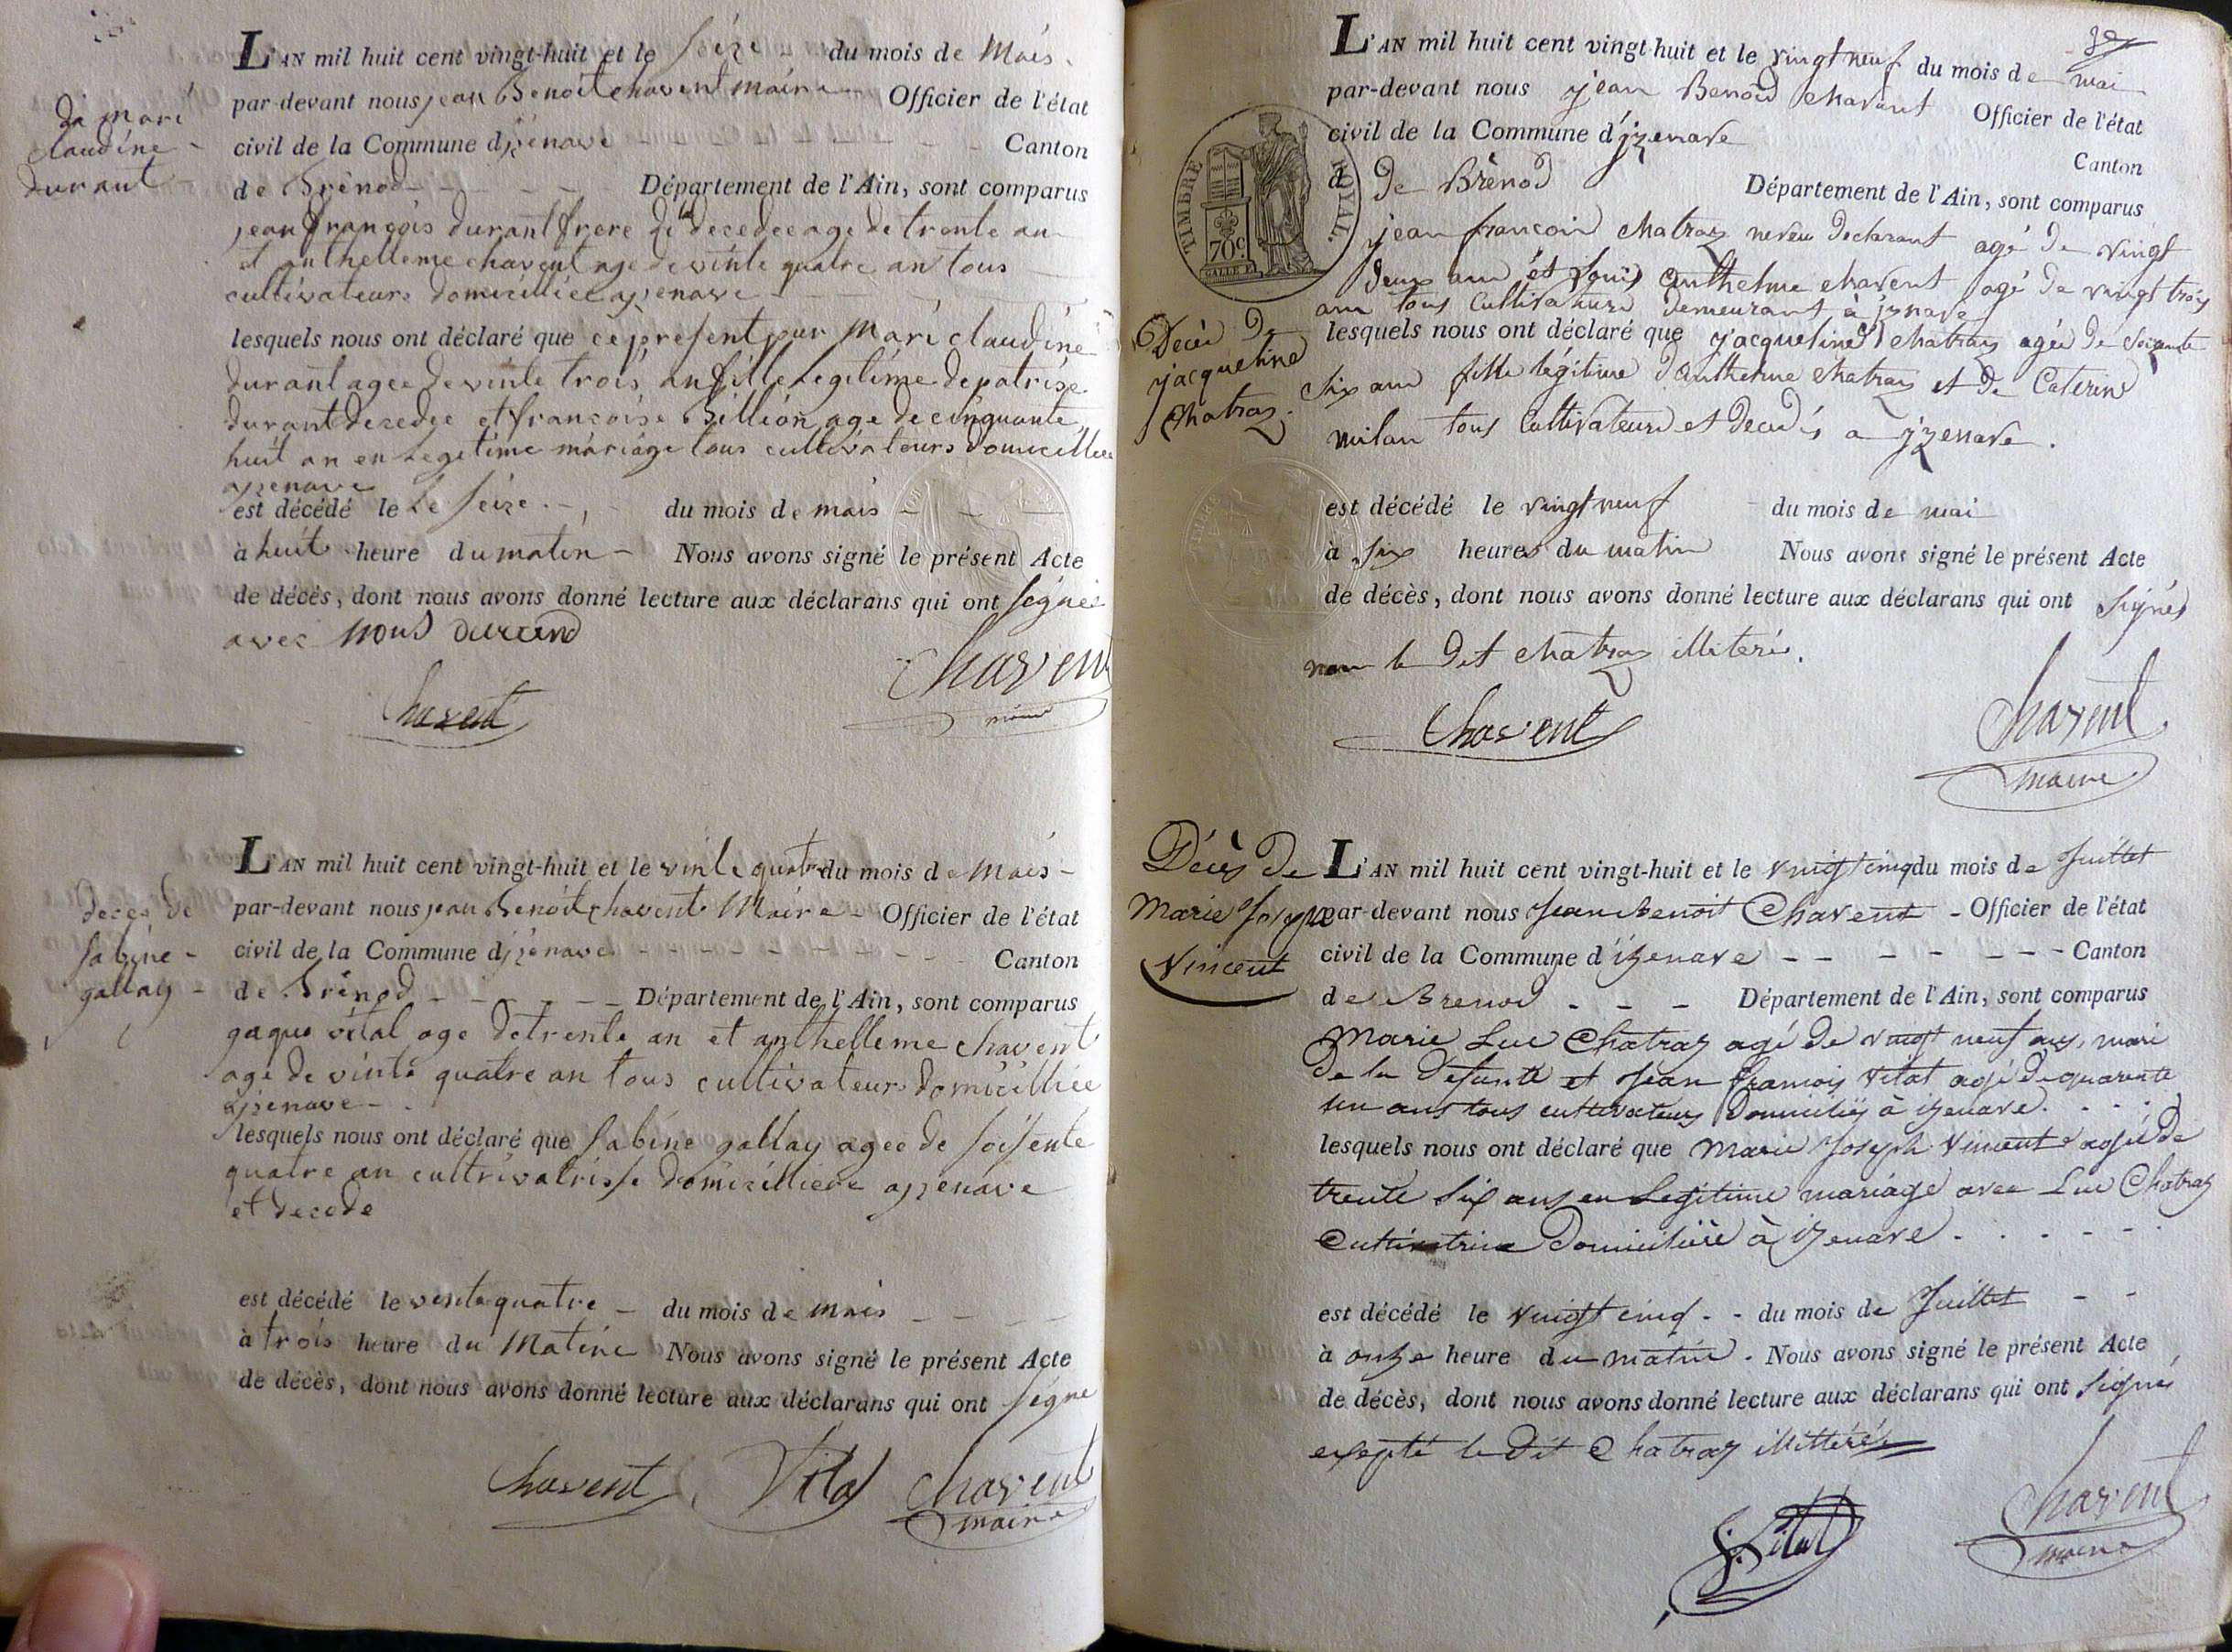 L'AN mil huit cent vingt-huit et le seize du mois de Mais
par-devant nous jean Benoit chavent maire Officier de l'état
civil de la Commune djzenave Canton
de Brenod Département de l'Ain, sont comparus
jean françois durant frere de la decedee age de trente an
et anthelleme chavent age de vinte quatre an tous
cultivateurs domicilliee ajzenave
lesquels nous ont déclaré que ce present jour Mari claudine
durant agee de vinte trois an fille Legitime de patrise
durant decedee et françoise Billion age de cinquante
huit an en Legetime mariage tous cultivateurs domicillee
ajzenave
est décédé le le seize du mois de mais
à huit heure du matin Nous avons signé le présent Acte
de décès, dont nous avons donné lecture aux déclarans qui ont segnée
avec nous durand
Chavent
Chavent
maire
de mari
claudine
durant
L'AN mil huit cent vingt-huit et le vinte quatre du mois de Mais
par-devant nous jean Benoit chavent Maire Officier de l'état
civil de la Commune djzenave Canton
de Brenod Département de l'Ain, sont comparus
gaque vital age de trente an et anthelleme chavent
age de vinte quatre an tous cultivateurs domicilliee
ajzenave
lesquels nous ont déclaré que Sabine gallay agee de soisente
quatre an cultrivatrisse domicilliere ajzenave
et decede
est décédé le vinte quatre du mois de mais
à trois heure du Matine Nous avons signé le présent Acte
de décès, dont nous avons donné lecture aux déclarans qui ont segne
Chavent Vital Chavent
maire
deces de
Sabine
gallay
L'AN mil huit cent vingt-huit et le vingt neuf du mois de mai
par-devant nous jean Benoid chavent Officier de l'état
civil de la Commune d'jzenave
Canton
d de Brénod Département de l'Ain, sont comparus
TIMBRE ROYAL.
70c.
jean francoid chatray neveu declarant agé de vingt
deux ans et Louis anthelme chavent agé de vingt trois
ans tous cultivateurs demeurant à jznave
lesquels nous ont déclaré que jacqueline chatray agée de soixante
six ans fille légitime d'anthelme chatray et de Caterine
milan tous cultivateurs et decedés a jzenave.
est décédé le vingt neuf du mois de mai
à six heures du matin Nous avons signé le présent Acte
de décès, dont nous avons donné lecture aux déclarans qui ont signés
non le dit chatray illiteré.
Chavent
Chavent
maire
Decès de
jacqueline
chatray.
L'AN mil huit cent vingt-huit et le vingt cinq du mois de Juillet
par-devant nous Jean Benoit Chavent Officier de l'état
civil de la Commune d'izenave Canton
de Brenod Département de l'Ain, sont comparus
Marie Luc Chatray agé de vingt neuf ans, mari
de la défunte et Jean françois Vital agé de quarente
un ans tous cultivateurs domiciliés à izenave.
lesquels nous ont déclaré que Marie Joseph Vincent agée de
trente six ans en Legitime mariage avec Luc Chatray
Cultivatrice Domiciliée à izenave.
est décédé le vingt cinq du mois de Juillet
à onze heure du matin. Nous avons signé le présent Acte
de décès, dont nous avons donné lecture aux déclarans qui ont signés
exepté le dit Chatray illittéré
J. Vital
Chavent
maire
Décès de
Marie Joseph
Vincent